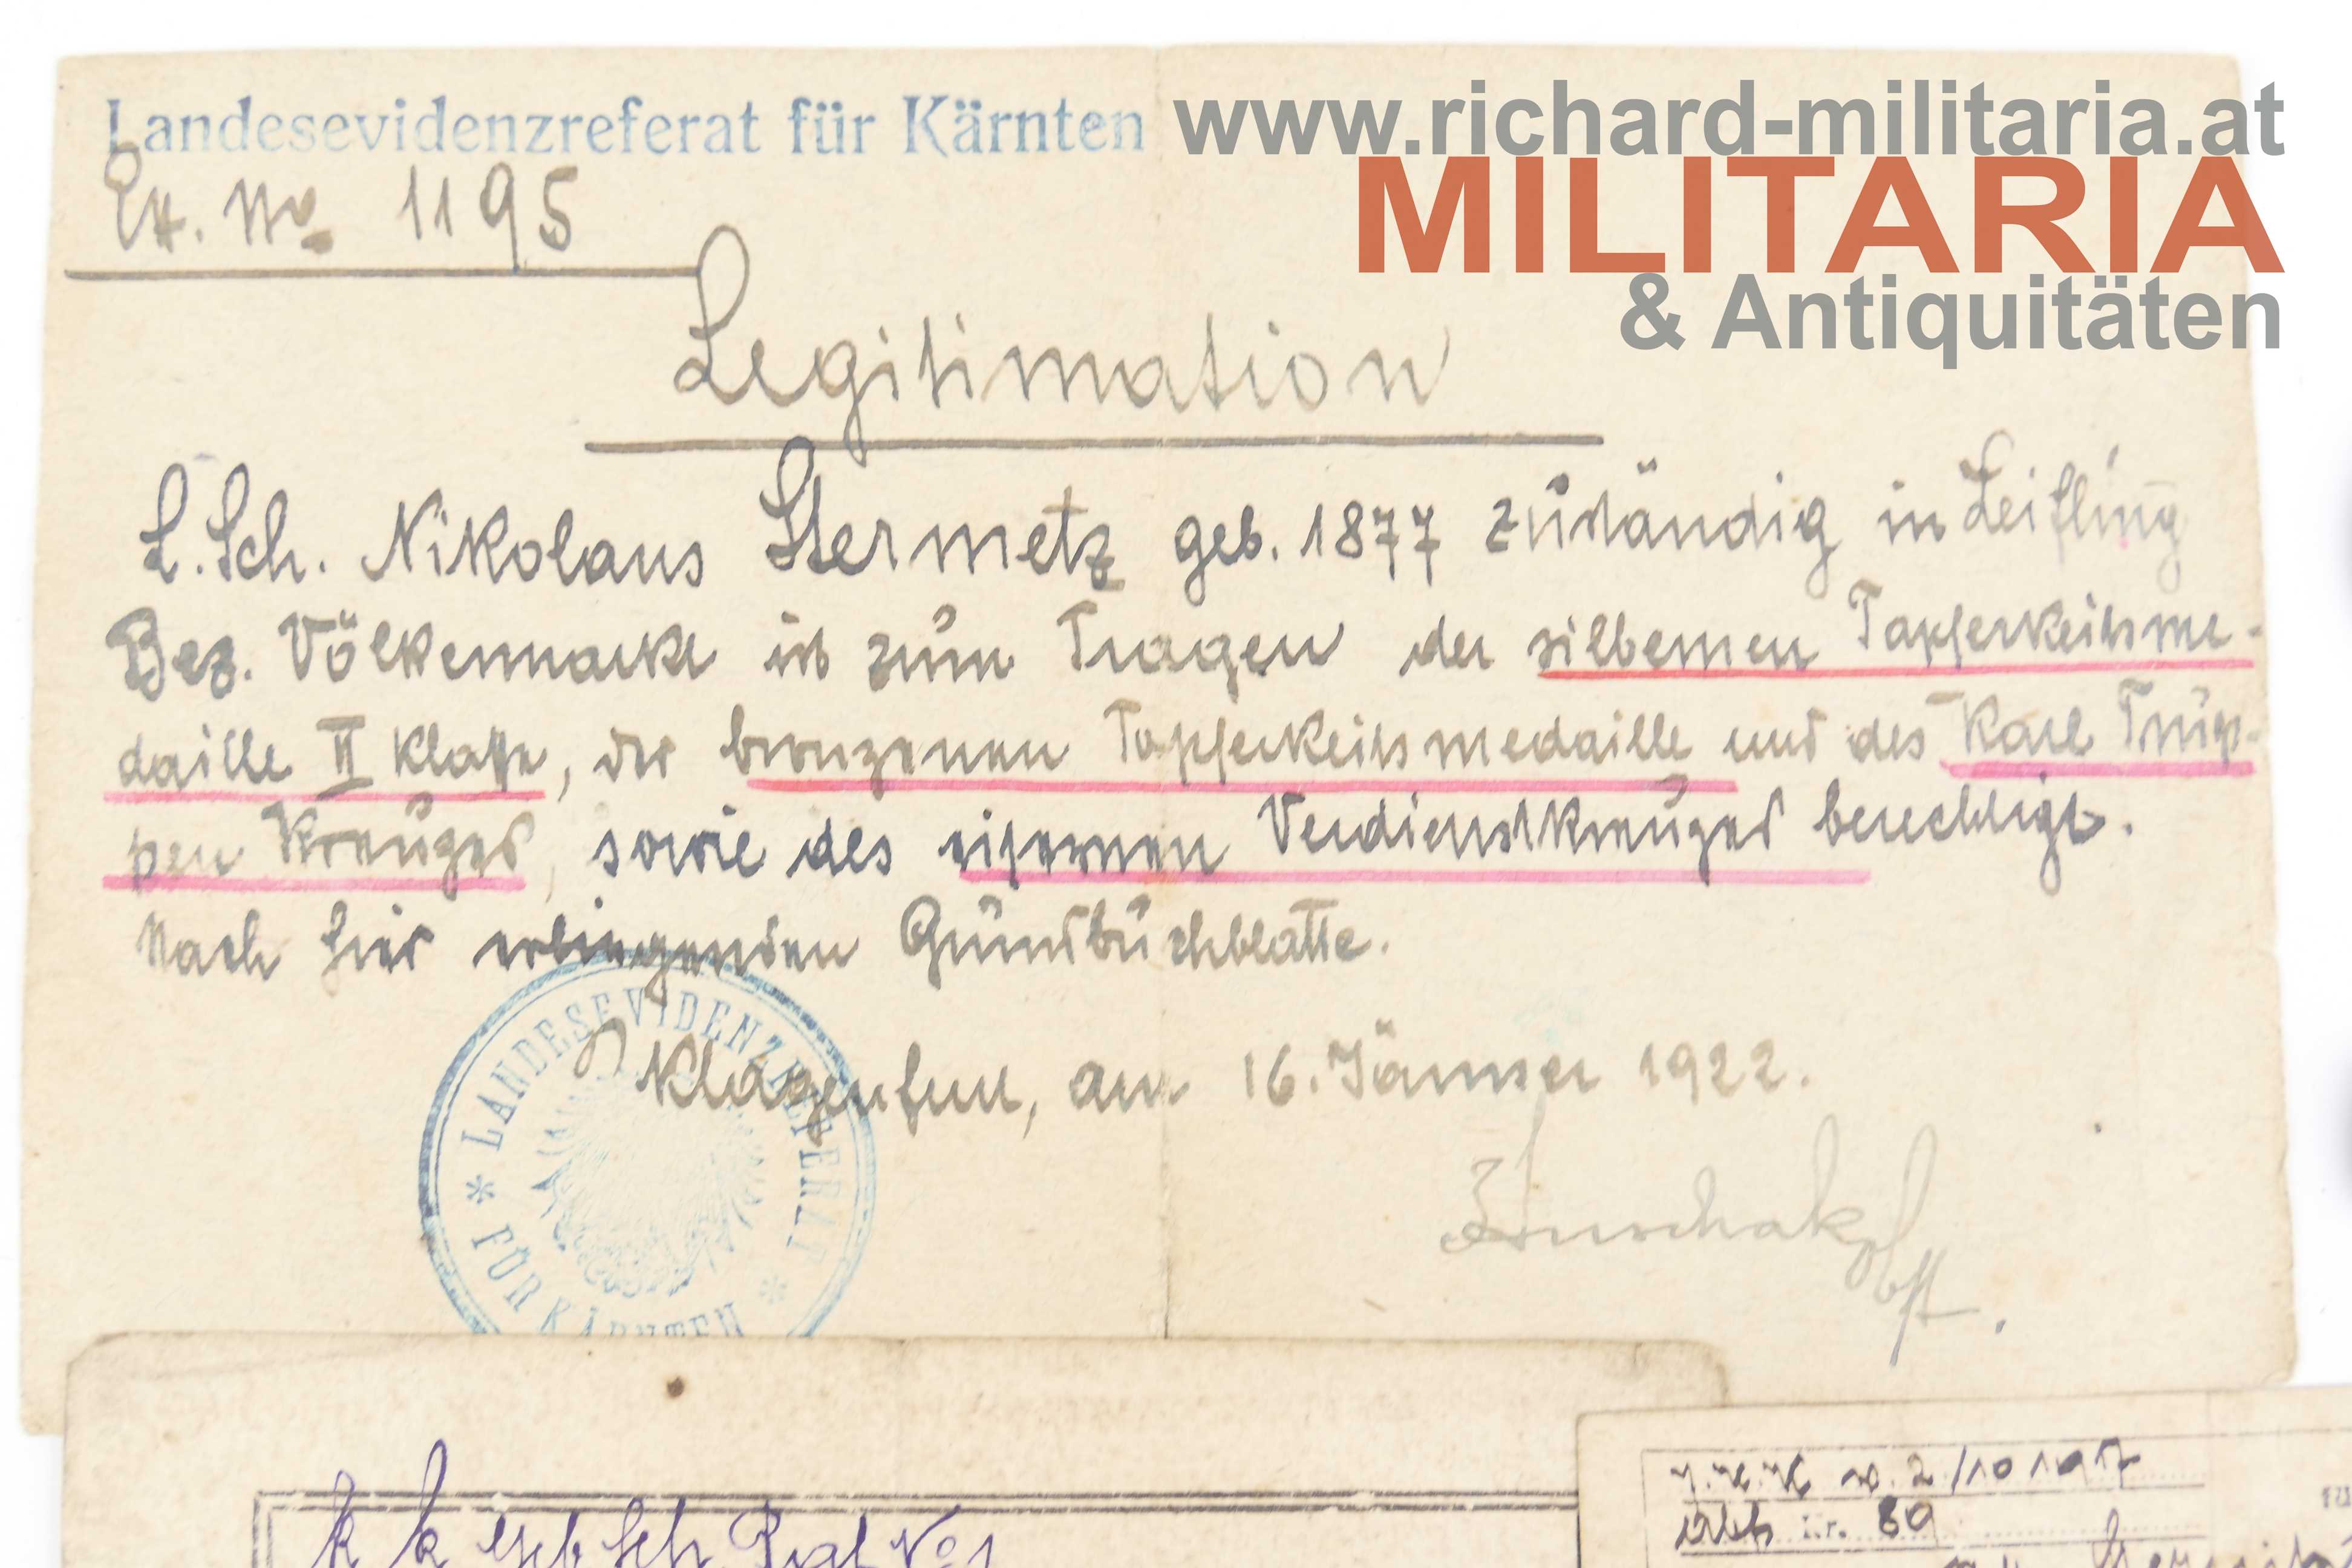 Landesevidenzreferat für Kärnten
www.richard-militaria.at
MILITARIA
& Antiquitäten
Ex. No 1195
Legitimation
L.Sch. Nikolaus Stermetz geb. 1877 zuständig in Leifling
Bez. Völkermarkt ist zum Tragen der silbernen Tapferkeitsme-
daille II Klasse, der bronzenen Tapferkeitsmedaille und des Karl Trup-
pen Kreuzes, sowie des eisernen Verdienstkreuzes berechtigt.
Nach hier erliegenden Grundbuchblatte.
Klagenfurt, am 16. Jänner 1922.
* LANDESEVIDENZREFERAT *
FÜR KÄRNTEN
Obst.
2/10 1917
i.r. 89